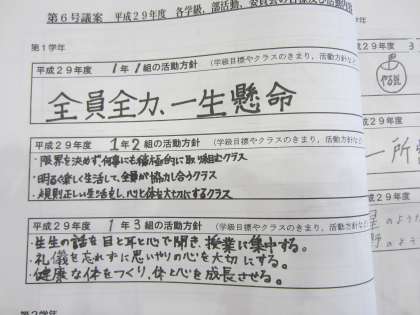 第６号議案　平成２９年度　各学級、部活動、委員会の
第１学年
平成２９年度　１年１組の活動方針　（学級目標やクラスのきまり，活動方針など
全員全力、一生懸命
平成２９年度　１年２組の活動方針　（学級目標やクラスのきまり，活動方針など
・限界を決めず、何事にも積極的に取り組むクラス
・明るく楽しく生活して、全員が協力し合うクラス
・規則正しい生活をし、心と体を大切にするクラス
平成２９年度　１年３組の活動方針　（学級目標やクラスのきまり，活動方針など
・先生の話を目と耳と心で聞き、授業に集中する。
・礼儀を忘れずに思いやりの心を大切にする。
・健康な体をつくり、体と心を成長させる。
平成２９年度　３
一所
平成２９年度
のような
のよう